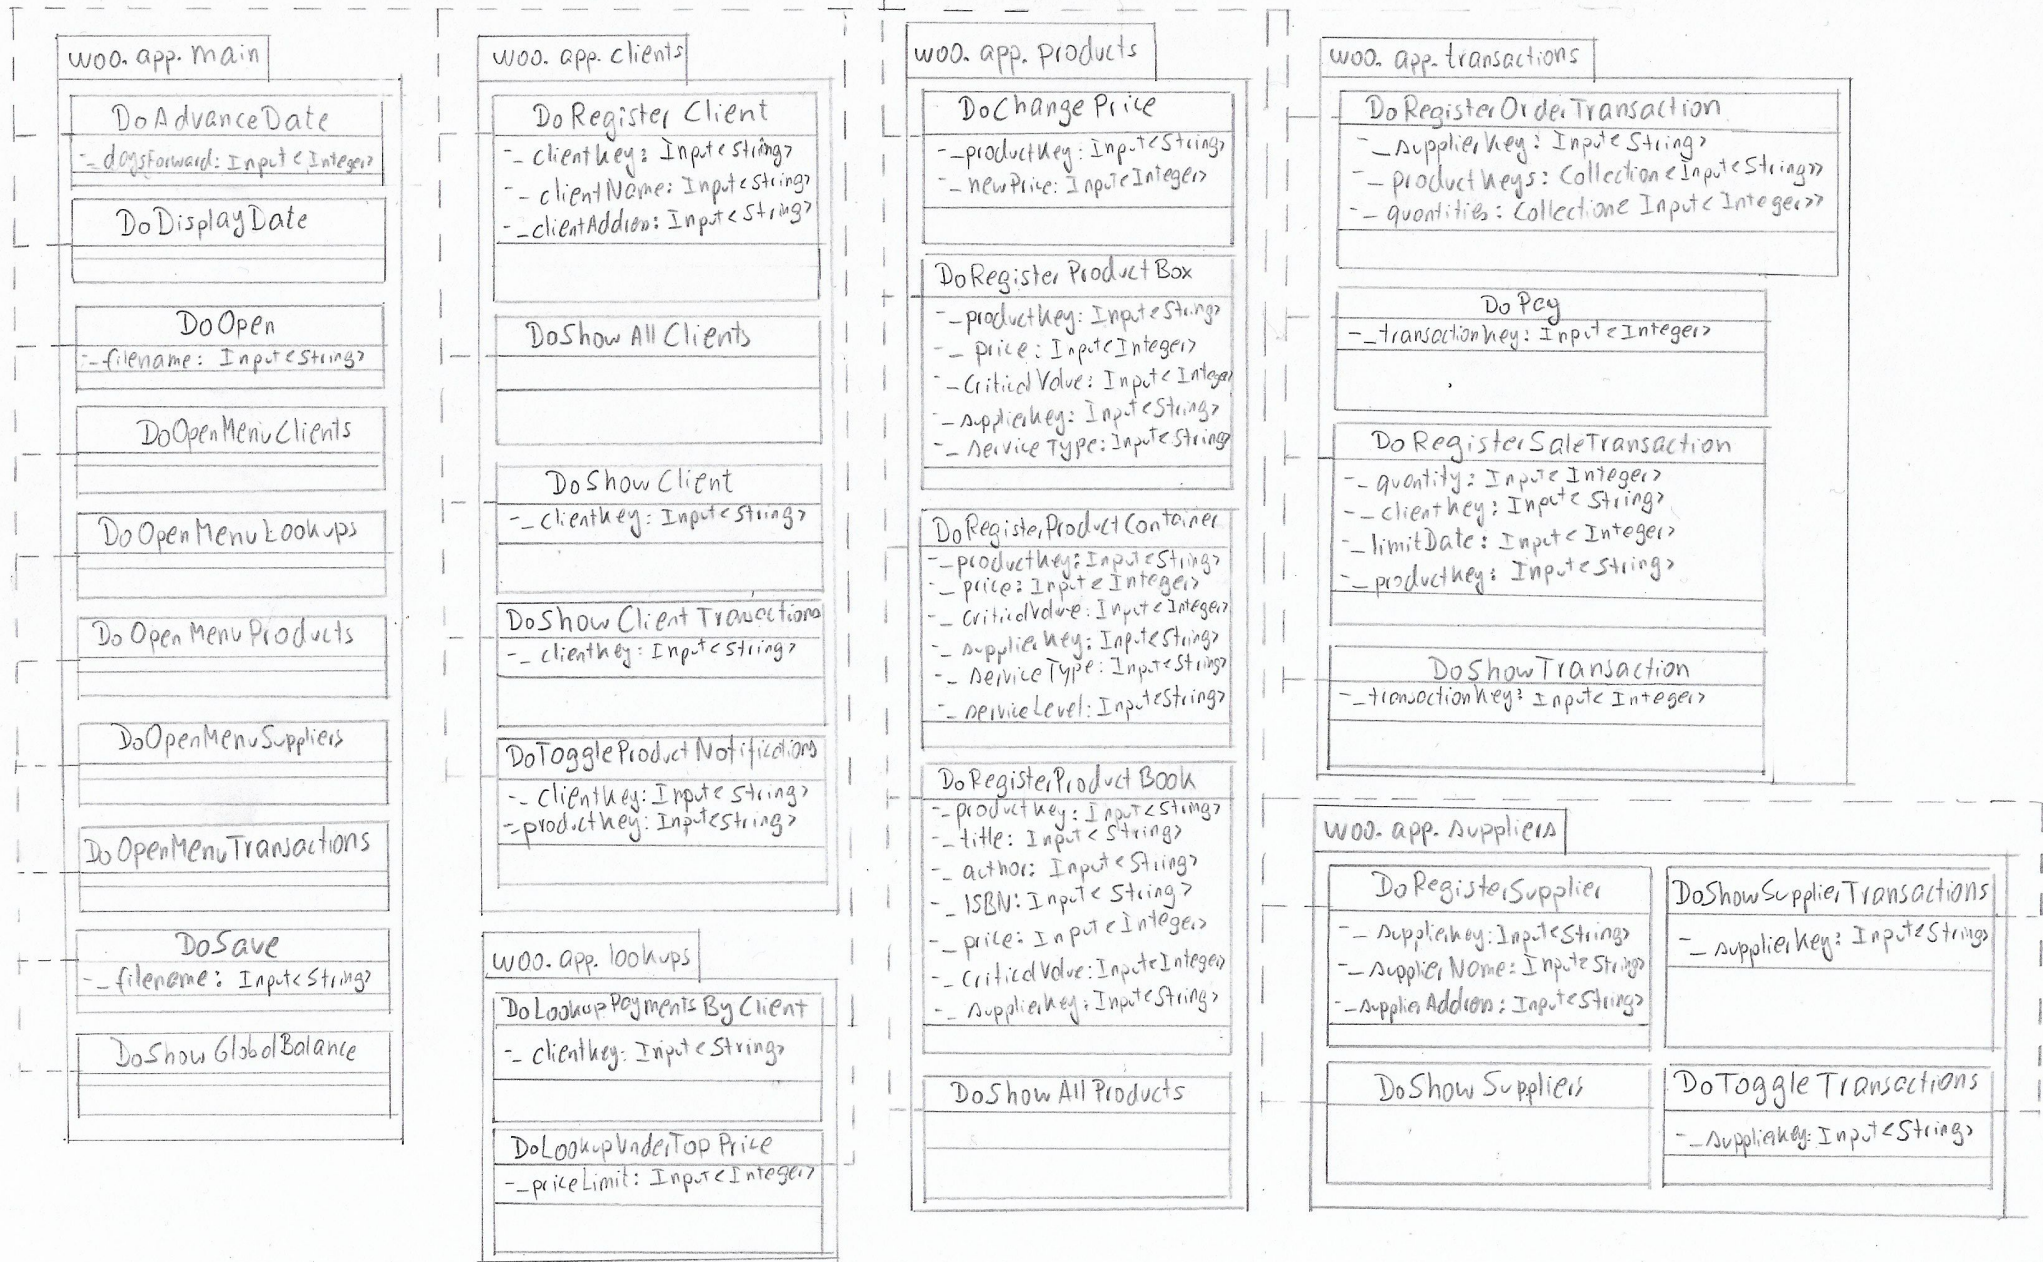 woo.app.main
DoAdvanceDate
-_daysForward: Input<Integer>
DoDisplayDate
DoOpen
-_filename: Input<String>
DoOpenMenuClients
DoOpenMenuLookups
DoOpenMenuProducts
DoOpenMenuSuppliers
DoOpenMenuTransactions
DoSave
-_filename: Input<String>
DoShowGlobalBalance
woo.app.clients
DoRegisterClient
-_clientKey: Input<String>
-_clientName: Input<String>
-_clientAddress: Input<String>
DoShowAllClients
DoShowClient
-_clientKey: Input<String>
DoShowClientTransactions
-_clientKey: Input<String>
DoToggleProductNotifications
-_clientKey: Input<String>
-_productKey: Input<String>
woo.app.lookups
DoLookupPaymentsByClient
-_clientKey: Input<String>
DoLookupUnderTopPrice
-_priceLimit: Input<Integer>
woo.app.products
DoChangePrice
-_productKey: Input<String>
-_newPrice: Input<Integer>
DoRegisterProductBox
-_productKey: Input<String>
-_price: Input<Integer>
-_criticalValue: Input<Integer
-_supplierKey: Input<String>
-_serviceType: Input<String>
DoRegisterProductContainer
-_productKey: Input<String>
-_price: Input<Integer>
-_criticalValue: Input<Integer>
-_supplierKey: Input<String>
-_serviceType: Input<String>
-_serviceLevel: Input<String>
DoRegisterProductBook
-_productKey: Input<String>
-_title: Input<String>
-_author: Input<String>
-_ISBN: Input<String>
-_price: Input<Integer>
-_criticalValue: Input<Integer>
-_supplierKey: Input<String>
DoShowAllProducts
woo.app.transactions
DoRegisterOrderTransaction
-_supplierKey: Input<String>
-_productKeys: Collection<Input<String>>
-_quantities: Collection<Input<Integer>>
DoPay
-_transactionKey: Input<Integer>
DoRegisterSaleTransaction
-_quantity: Input<Integer>
-_clientKey: Input<String>
-_limitDate: Input<Integer>
-_productKey: Input<String>
DoShowTransaction
-_transactionKey: Input<Integer>
woo.app.suppliers
DoRegisterSupplier
-_supplierKey: Input<String>
-_supplierName: Input<String>
-_supplierAddress: Input<String>
DoShowSupplierTransactions
-_supplierKey: Input<String>
DoShowSuppliers
DoToggleTransactions
-_supplierKey: Input<String>